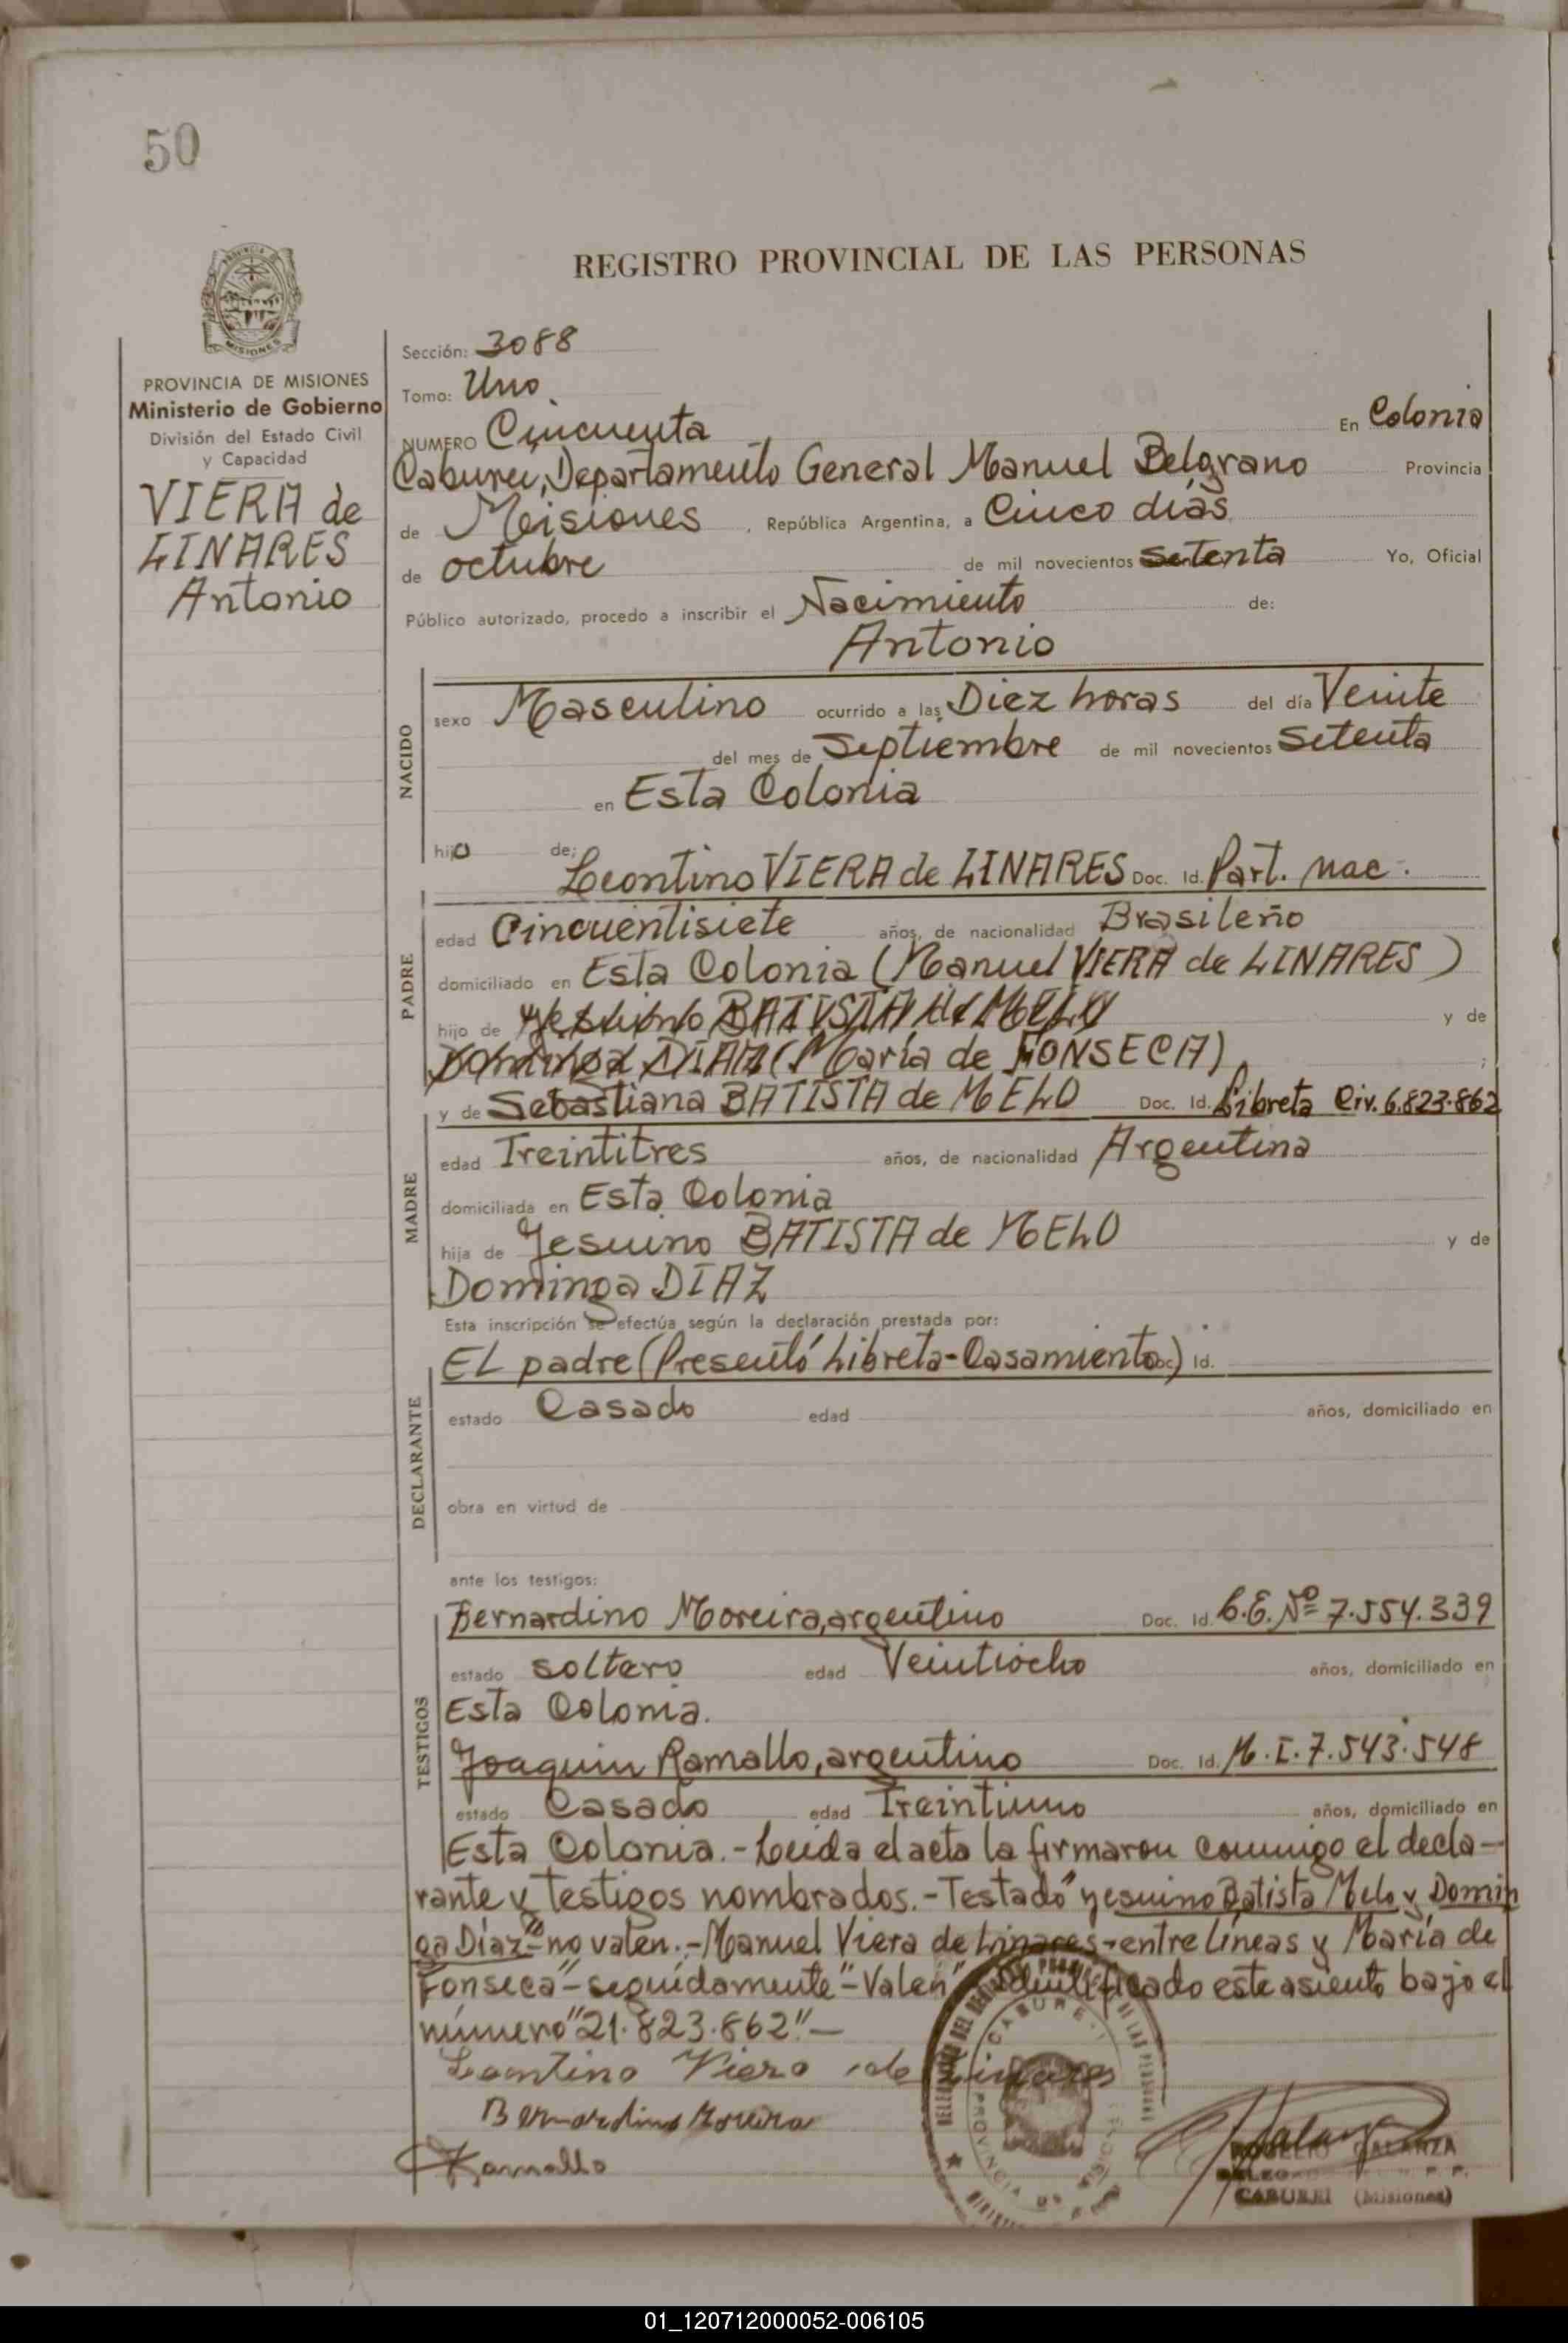 50
REGISTRO PROVINCIAL DE LAS PERSONAS
MISIONES
PROVINCIA DE MISIONES
Ministerio de Gobierno
División del Estado Civil
y Capacidad
VIERA de
LINARES
Antonio
Sección: 3088
Tomo: Uno.
NUMERO Cincuenta En Colonia
Caburei, Departamento General Manuel Belgrano Provincia
de Misiones, República Argentina, a Cinco días
de octubre de mil novecientos setenta Yo, Oficial
Público autorizado, procedo a inscribir el Nacimiento de:
Antonio
NACIDO
sexo Masculino ocurrido a las Diez horas del día Veinte
del mes de Septiembre de mil novecientos Setenta
en Esta Colonia
hijo de:
Leontino VIERA de LINARES Doc. Id. Part. nac.
PADRE
edad Cincuentisiete años, de nacionalidad Brasileño
domiciliado en Esta Colonia (Manuel VIERA de LINARES)
hijo de Yesuino BATISTA de MELO y de
Dominga DIAZ (María de FONSECA) ;
y de Sebastiana BATISTA de MELO Doc. Id. Libreta Civ. 6.823.862
MADRE
edad Treintitres años, de nacionalidad Argentina
domiciliada en Esta Colonia
hija de Yesuino BATISTA de MELO y de
Dominga DIAZ
Esta inscripción se efectúa según la declaración prestada por:
DECLARANTE
EL padre (Presentó Libreta-Casamiento) Doc. Id.
estado Casado edad años, domiciliado en
obra en virtud de
ante los testigos:
TESTIGOS
Bernardino Moreira, argentino Doc. Id. C.E. Nº 7.554.339
estado soltero edad Veintiocho años, domiciliado en
Esta Colonia.
Joaquin Ramallo, argentino Doc. Id. M.I. 7.543.548
estado Casado edad Treintiuno años, domiciliado en
Esta Colonia.- Leída el acta la firmaron conmigo el decla-
rante y testigos nombrados.- Testado "Yesuino Batista Melo y Domin
ga Díaz"- no valen.- Manuel Viera de Linares - entre líneas y María de
Fonseca"- seguidamente"- Valen" Identificado este asiento bajo el
número "21.823.862".-
Leontino Viera de Linares
Bernardino Moreira
Ramallo
CABUREI
ROGELIO GALARZA
CABUREI (Misiones)
01_120712000052-006105